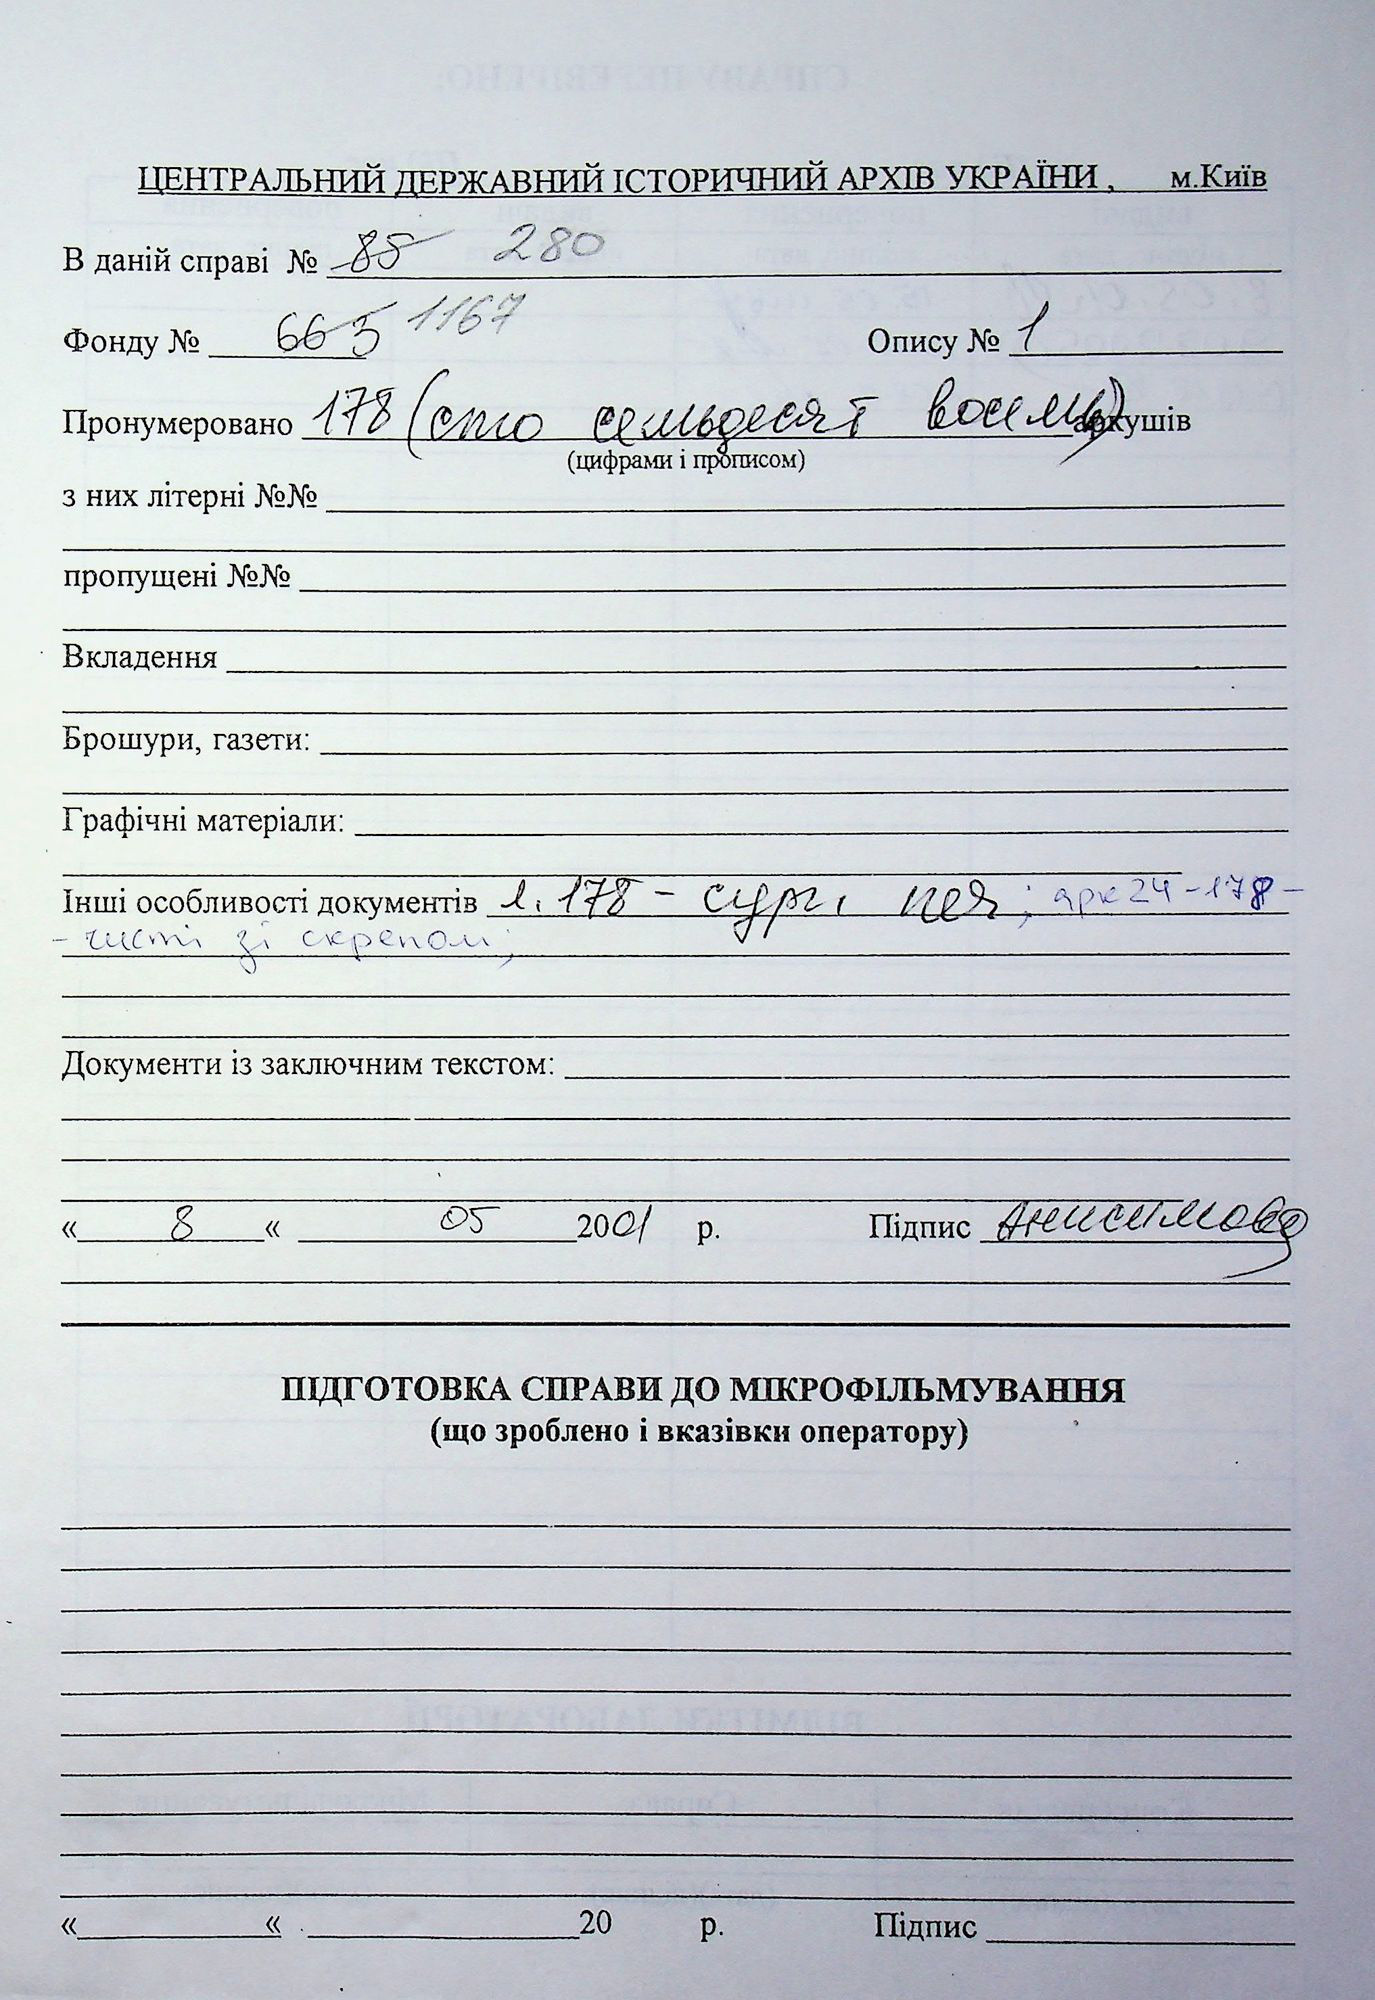 ЦЕНТРАЛЬНИЙ ДЕРЖАВНИЙ ІСТОРИЧНИЙ АРХІВ УКРАЇНИ , м.Київ
В даній справі № 85 280
Фонду № 665 1167 Опису № 1
Пронумеровано 178 (сто семьдесят восемь) аркушів
(цифрами і прописом)
з них літерні №№
пропущені №№
Вкладення
Брошури, газети:
Графічні матеріали:
Інші особливості документів л. 178 - сург. печ; арк 24 - 178 -
- чисті зі скрепом;
Документи із заключним текстом:
« 8 « 05 2001 р. Підпис Анисимова
ПІДГОТОВКА СПРАВИ ДО МІКРОФІЛЬМУВАННЯ
(що зроблено і вказівки оператору)
« « 20 р. Підпис